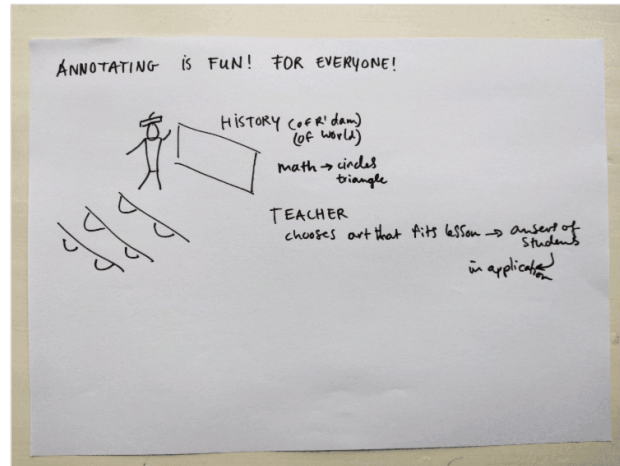 ANNOTATING IS FUN! FOR EVERYONE!
HISTORY (OF R'dam)
(OF World)
math → circles
triangle
TEACHER
chooses art that fits lesson → answ of
students
in application